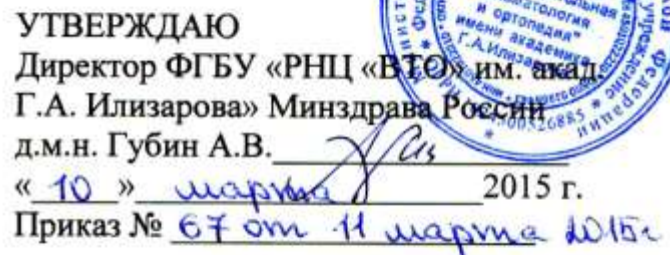 УТВЕРЖДАЮ
Директор ФГБУ «РНЦ «ВТО» им. акад.
Г.А. Илизарова» Минздрава России
д.м.н. Губин А.В.
« 10 » марта 2015 г.
Приказ № 67 от 11 марта 2015г
и ортопедия"
имени академика
Г.А.Илизарова